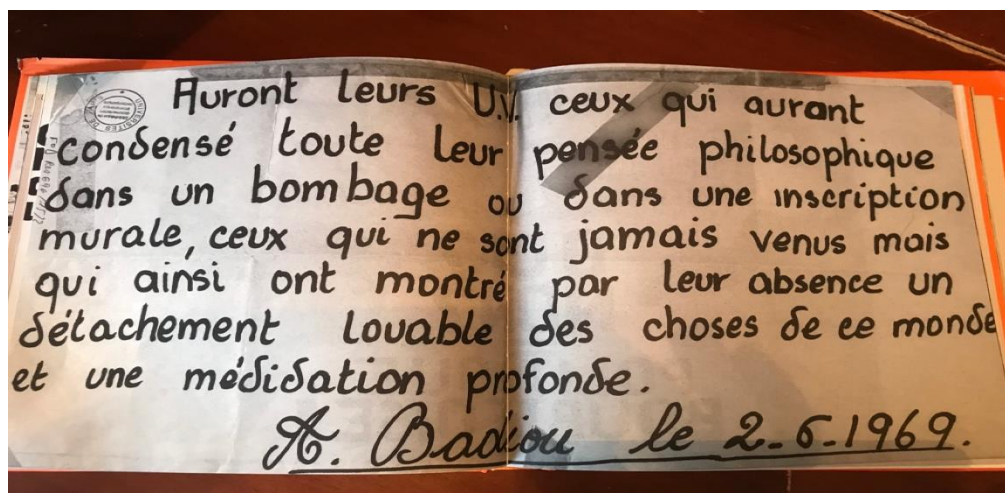 Auront leurs U.V. ceux qui aurant
condensé toute leur pensée philosophique
dans un bombage ou dans une inscription
murale, ceux qui ne sont jamais venus mais
qui ainsi ont montré par leur absence un
détachement louable des choses de ce monde
et une médidation profonde.
A. Badiou le 2-6-1969.